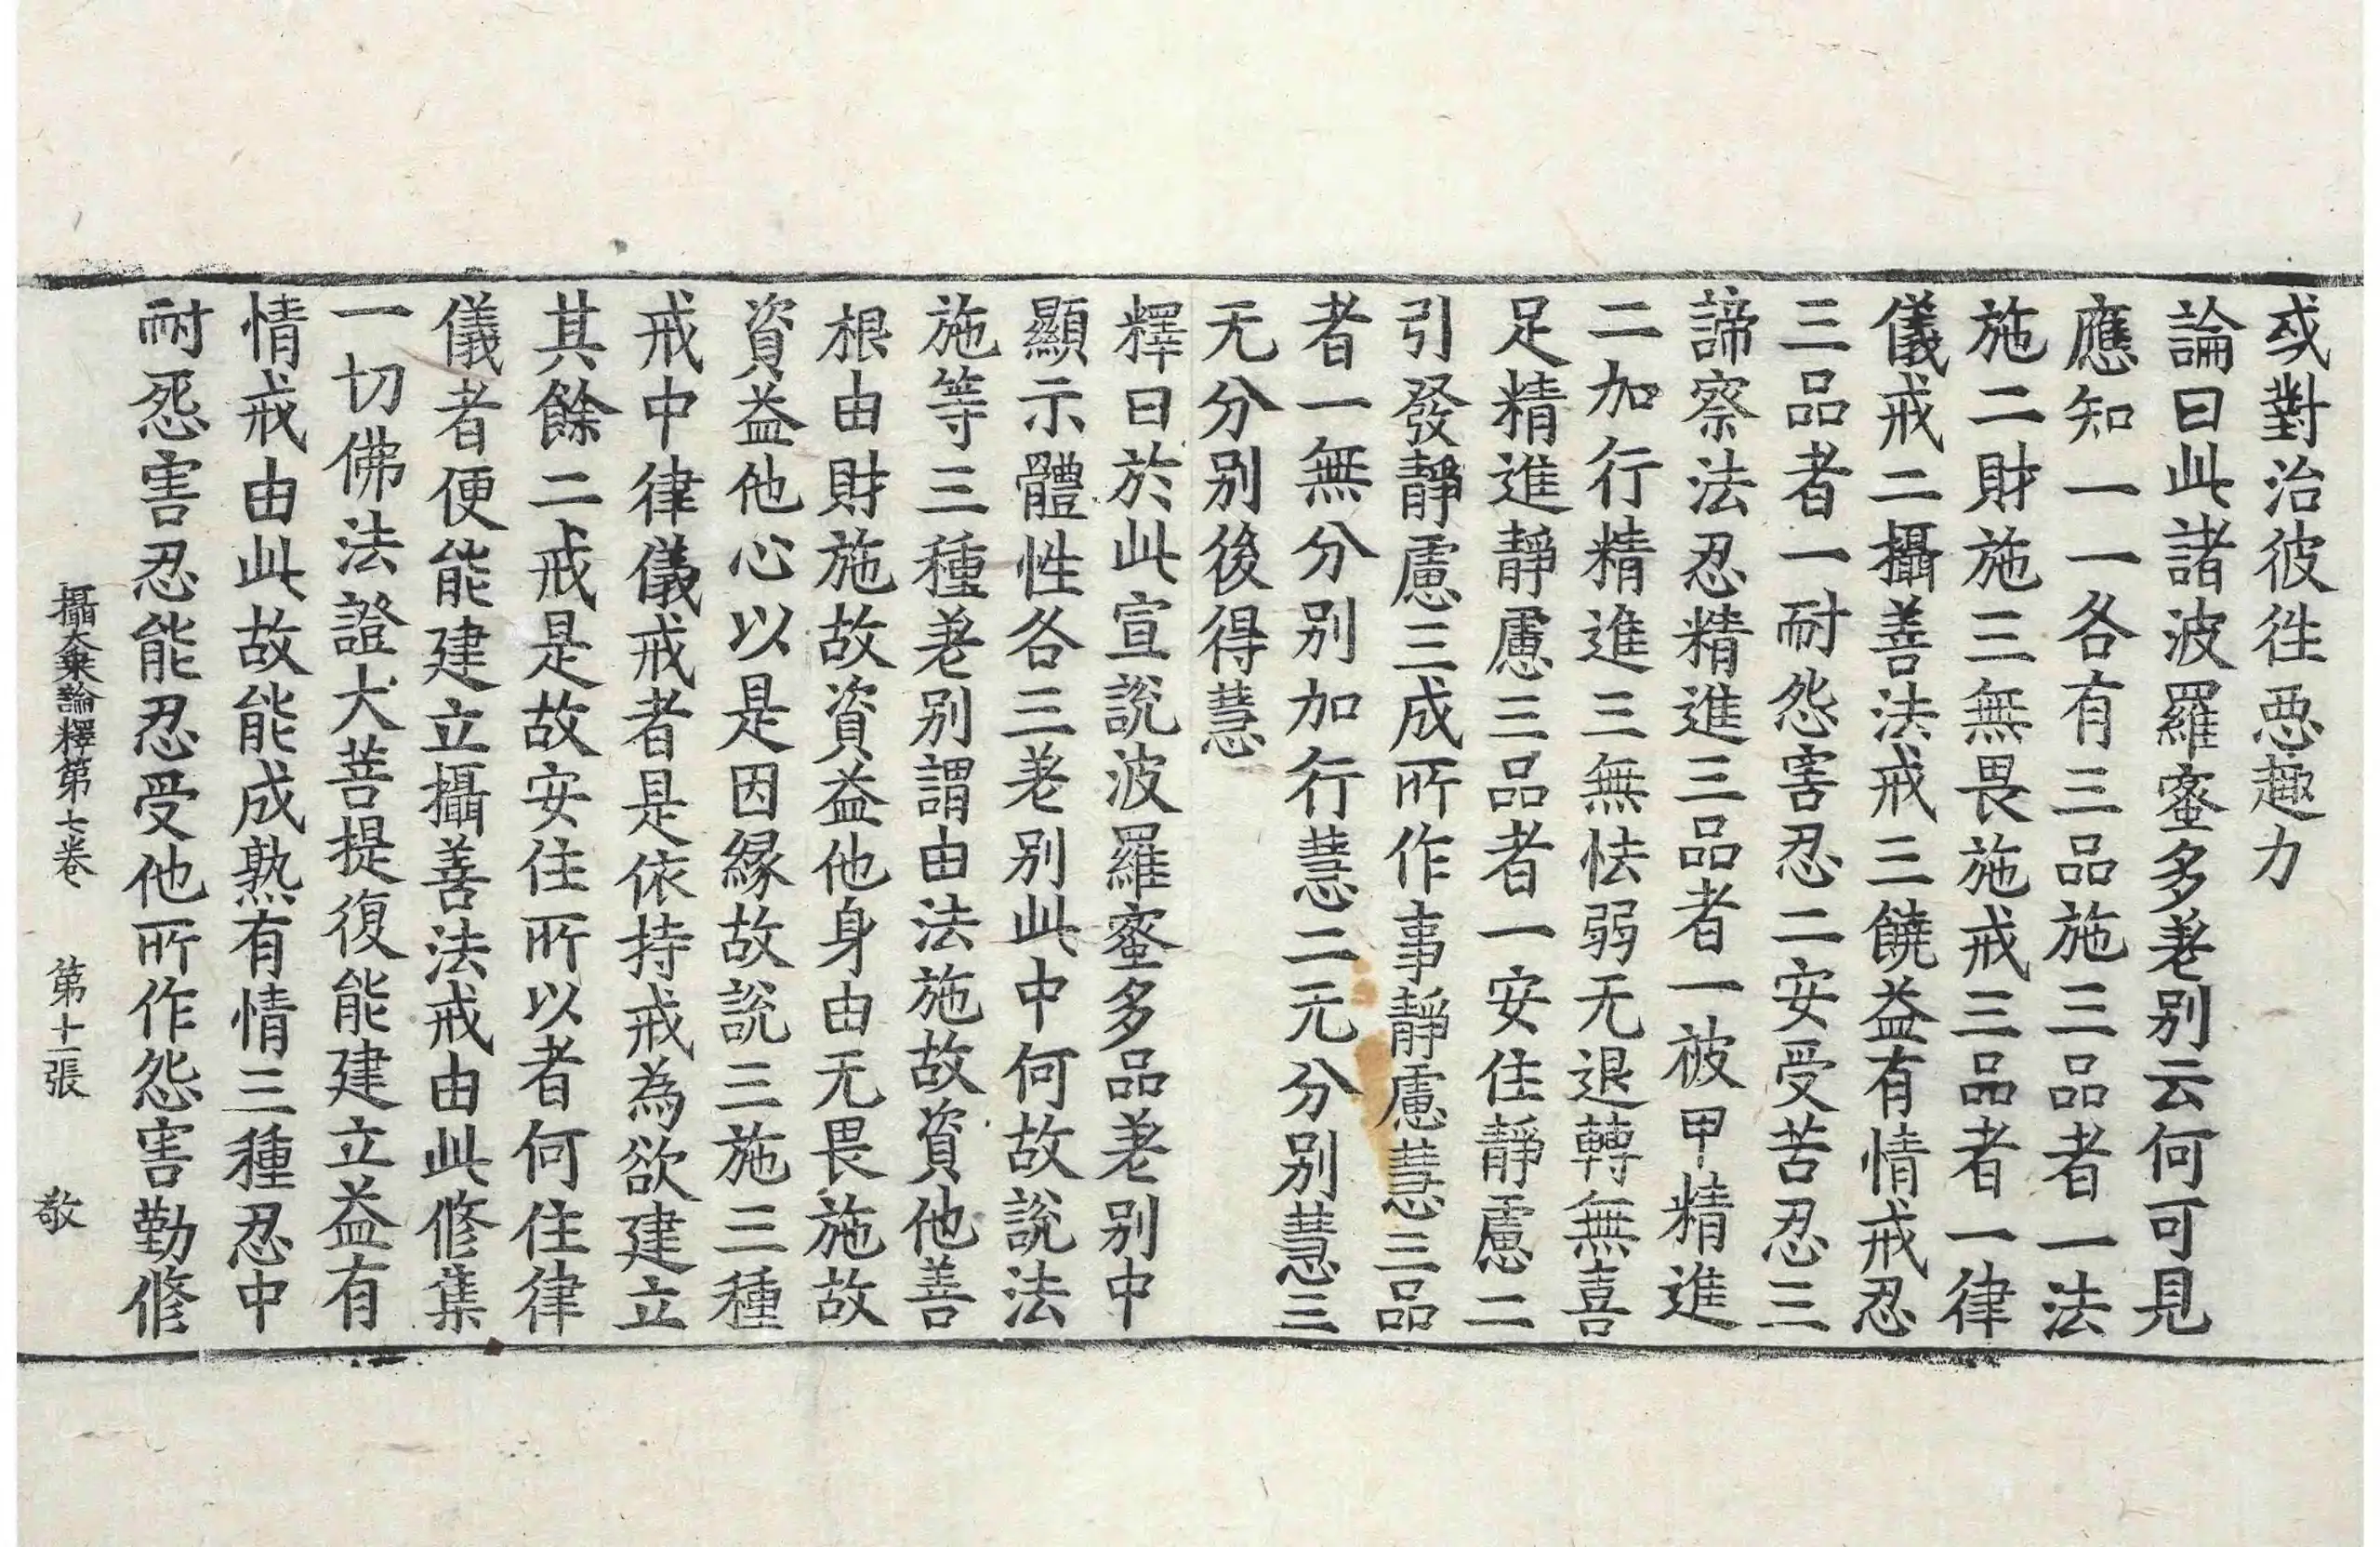 或對治彼徃惡趣力
論曰此諸波羅蜜多差别云何可見
應知一一各有三品施三品者一法
施二財施三無畏施戒三品者一律
儀戒二攝善法戒三饒益有情戒忍
三品者一耐怨害忍二安受苦忍三
諦察法忍精進三品者一被甲精進
二加行精進三無怯弱无退轉無喜
足精進靜慮三品者一安住靜慮二
引發靜慮三成所作事靜慮慧三品
者一無分别加行慧二无分别慧三
无分别後得慧
釋曰於此宣說波羅蜜多品差别中
顯示體性各三差别此中何故說法
施等三種差别謂由法施故資他善
根由財施故資益他身由无畏施故
資益他心以是因緣故說三施三種
戒中律儀戒者是依持戒為欲建立
其餘二戒是故安住所以者何住律
儀者便能建立攝善法戒由此修集
一切佛法證大菩提復能建立益有
情戒由此故能成熟有情三種忍中
耐怨害忍能忍受他所作怨害勤修
攝大乘論釋第七卷 第十二張 敬